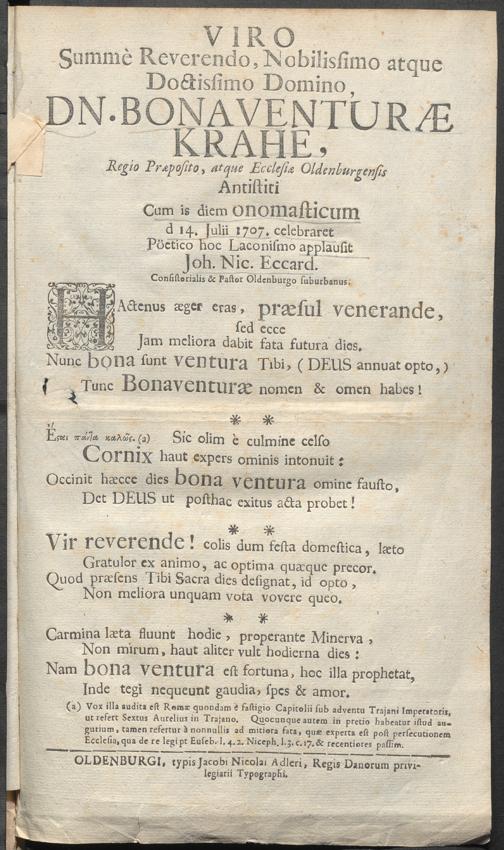 VIRO
Summè Reverendo, Nobilissimo atque
Doctissimo Domino,
DN. BONAVENTURÆ
KRAHE,
Regio Præposito, atque Ecclesiæ Oldenburgensis
Antistiti
Cum is diem onomasticum
d 14. Julii 1707. celebraret
Pöetico hoc Laconismo applausit
Joh. Nic. Eccard.
Consistorialis & Pastor Oldenburgo suburbanus.
HActenus æger eras, præsul venerande,
sed ecce
Jam meliora dabit fata futura dies.
Nunc bona sunt ventura Tibi, (DEUS annuat opto,)
Tunc Bonaventuræ nomen & omen habes!
* *
Ἔςαι πάντα καλῶς. (a) Sic olim è culmine celso
Cornix haut expers ominis intonuit:
Occinit hæcce dies bona ventura omine fausto,
Det DEUS ut posthac exitus acta probet!
* *
Vir reverende! colis dum festa domestica, læto
Gratulor ex animo, ac optima quæque precor.
Quod præsens Tibi Sacra dies designat, id opto,
Non meliora unquam vota vovere queo.
* *
Carmina læta fluunt hodie, properante Minerva,
Non mirum, haut aliter vult hodierna dies:
Nam bona ventura est fortuna, hoc illa prophetat,
Inde tegi nequeunt gaudia, spes & amor.
(a) Vox illa audita est Romæ quondam è fastigio Capitolii sub adventu Trajani Imperatoris,
ut refert Sextus Aurelius in Trajano. Quocunque autem in pretio habeatur istud au-
gurium, tamen refertur à nonnullis ad mitiora fata, quæ experta est post persecutionem
Ecclesia, qua de re legipt Euseb. l. 4. 2. Niceph. l. 3. c. 17. & recentiores passim.
OLDENBURGI, typis Jacobi Nicolai Adleri, Regis Danorum privi-
legiarii Typographi.